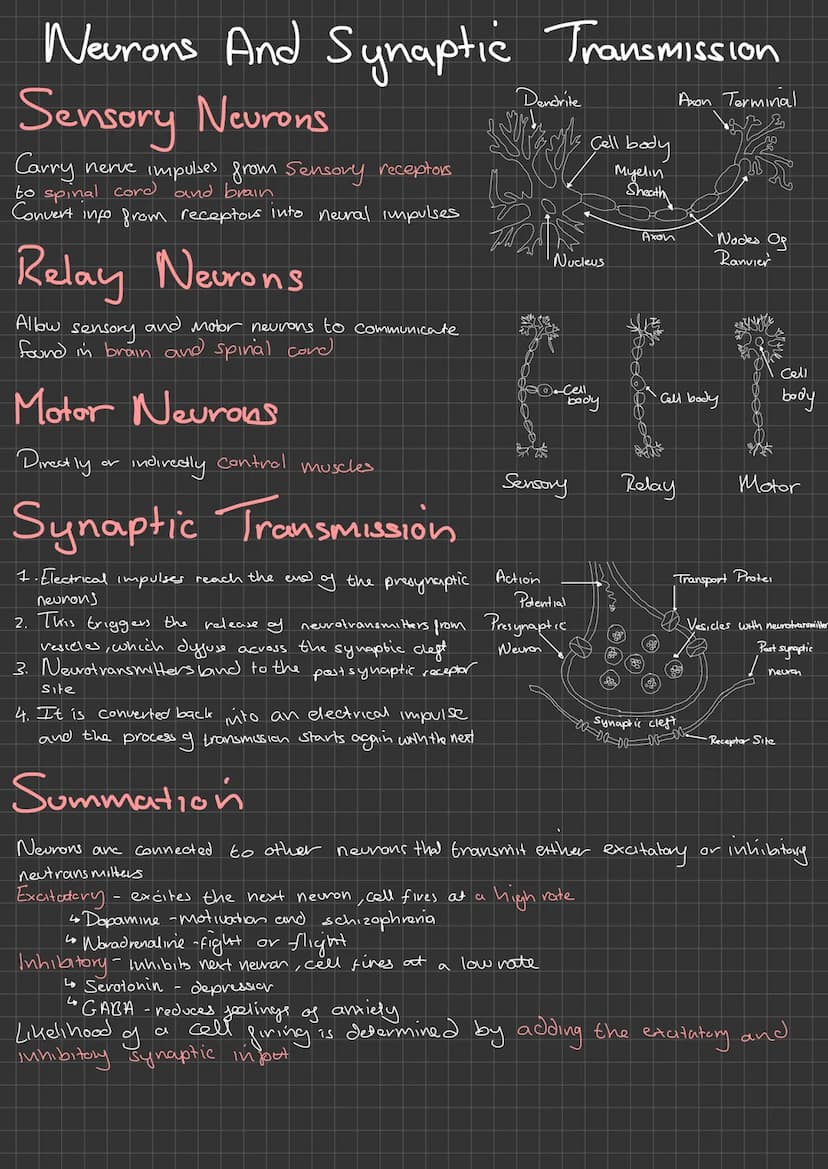 Neurons And Synaptic Transmission
Sensory Neurons
Carry nerve impulses from Sensory receptors
to spinal cord and brain
Convert info from receptors into neural impulses
Dendrite
Axon Terminal
Cell body
Myelin
Sheath
Axon
Nodes Of
Ranvier
Nucleus
Relay Neurons
Allow sensory and motor neurons to communicate
found in brain and spinal cord
Motor Neurons
Directly or indirectly control muscles
Cell
body
Cell body
Cell
body
Sensory
Relay
Motor
Synaptic Transmission
1. Electrical impulses reach the end of the presynaptic
neurons
2. This triggers the release of neurotransmitters from
vesicles, which diffuse across the synaptic cleft
3. Neurotransmitters land to the postsynaptic receptor
site
4. It is converted back into an electrical impulse
and the process of transmission starts again with the next
Action
Potential
Presynaptic
Neuron
Transport Protei
Vesicles with neurotransmitter
Post synaptic
neuron
Synaptic cleft
Receptor Site
Summation
Neurons are connected to other neurons that transmit either excitatory or inhibitory
neutransmitters
Excitatory - excites the next neuron, cell fires at a high rate
↳ Dopamine - motivation and schizophrenia
↳ Noradrenaline - fight or flight
Inhibitory - inhibits next neuron, cell fires at a low rate
↳ Serotonin - depression
↳ GABA - reduces feelings of anxiety
Likelihood of a cell firing is determined by adding the excitatory and
inhibitory synaptic input